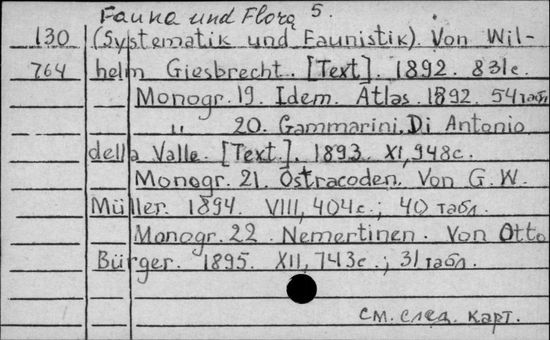 Fauna und Flora 5.
130 (Systematik und Faunistik). Von Wil-
764 helm Giesbrecht. [Text]. 1892. 831с.
Monogr. 19. Idem. Atlas. 1892. 54 табл
" 20. Gammarini. Di Antonio
della Valle. [Text]. 1893. XI, 948с.
Monogr. 21. Ostracoden. Von G. W.
Müller. 1894. VIII, 404с.; 40 табл.
Monogr. 22. Nemertinen. Von Otto
Bürger. 1895. XII, 743с.; 31 табл.
См. след. карт.